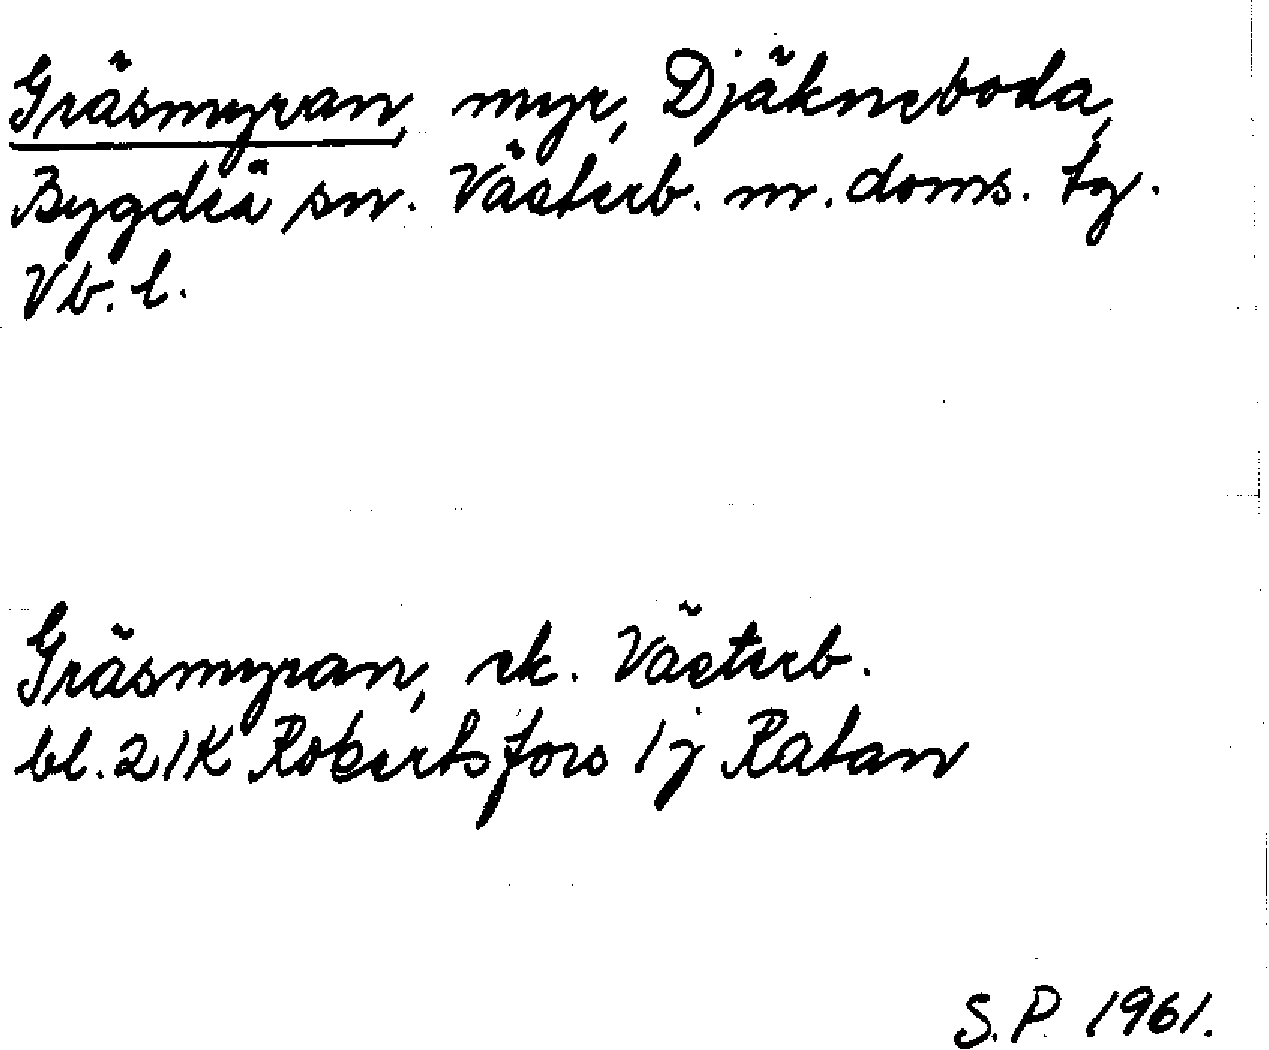 Gräsmyran, myr, Djäkneboda,
Bygdeå sn. Västerb. n. doms. tg.
Vb. l.
Gräsmyran, ek. Västerb.
bl. 21K Robertsfors 1j Ratan
S.P. 1961.